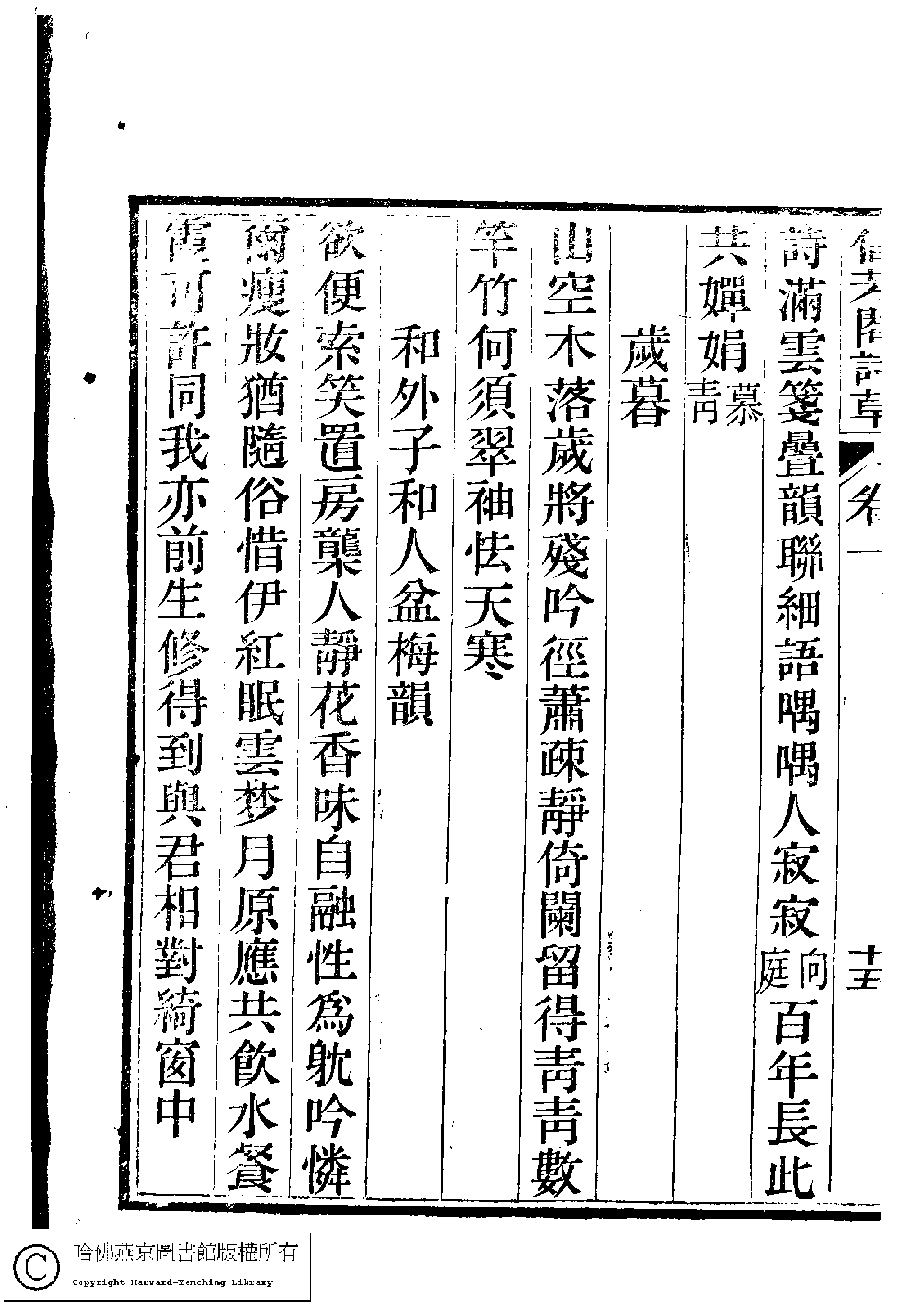 詩草 卷一 十五
詩滿雲箋疊韻聯細語喁喁人寂寂向庭百年長此
共嬋娟慕青
歲暮
山空木落歲將殘吟徑蕭疎靜倚闌留得青青數
竿竹何須翠袖怯天寒
和外子和人盆梅韻
欲便索笑置房櫳人靜花香味自融性爲躭吟憐
爾瘦妝猶隨俗惜伊紅眠雲梦月原應共飮水餐
霞可許同我亦前生修得到與君相對綺窗中
哈佛燕京圖書館版權所有
Copyright Harvard-Yenching Library